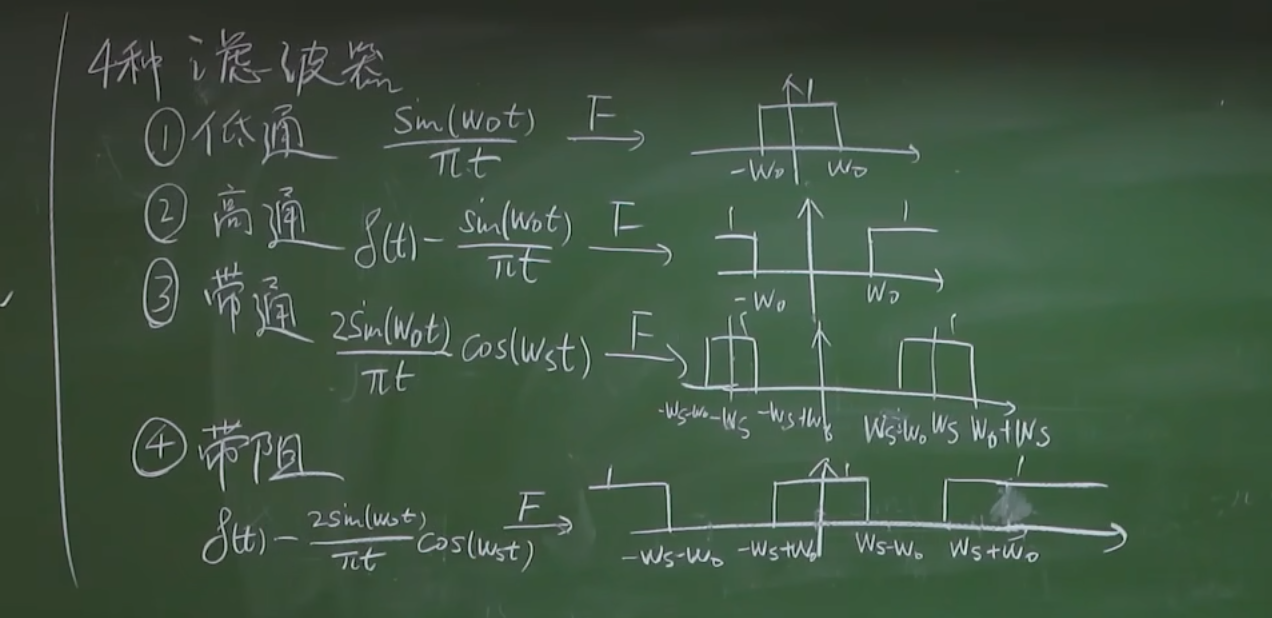 4种滤波器
①低通 sin(w₀t)/πt F→ 1 -w₀ w₀
②高通 δ(t) - sin(w₀t)/πt F→ 1 1 -w₀ w₀
③带通 2sin(w₀t)/πt cos(wₛt) F→ 1 1 -wₛ-w₀ -wₛ -wₛ+w₀ wₛ-w₀ wₛ w₀+wₛ
④带阻
δ(t) - 2sin(w₀t)/πt cos(wₛt) F→ 1 1 1 -wₛ-w₀ -wₛ+w₀ wₛ-w₀ wₛ+w₀